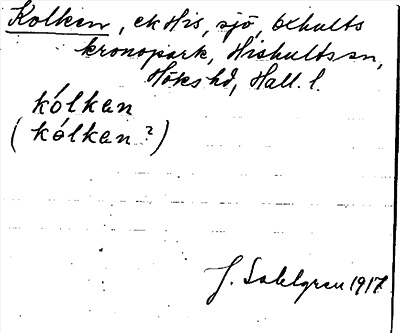 Kolken, ek His, sjö, Oxhults
kronopark, Hishults sn,
Höks hd, Hall. l.
kólkan
(kólkan?)
J. Sahlgren 1917